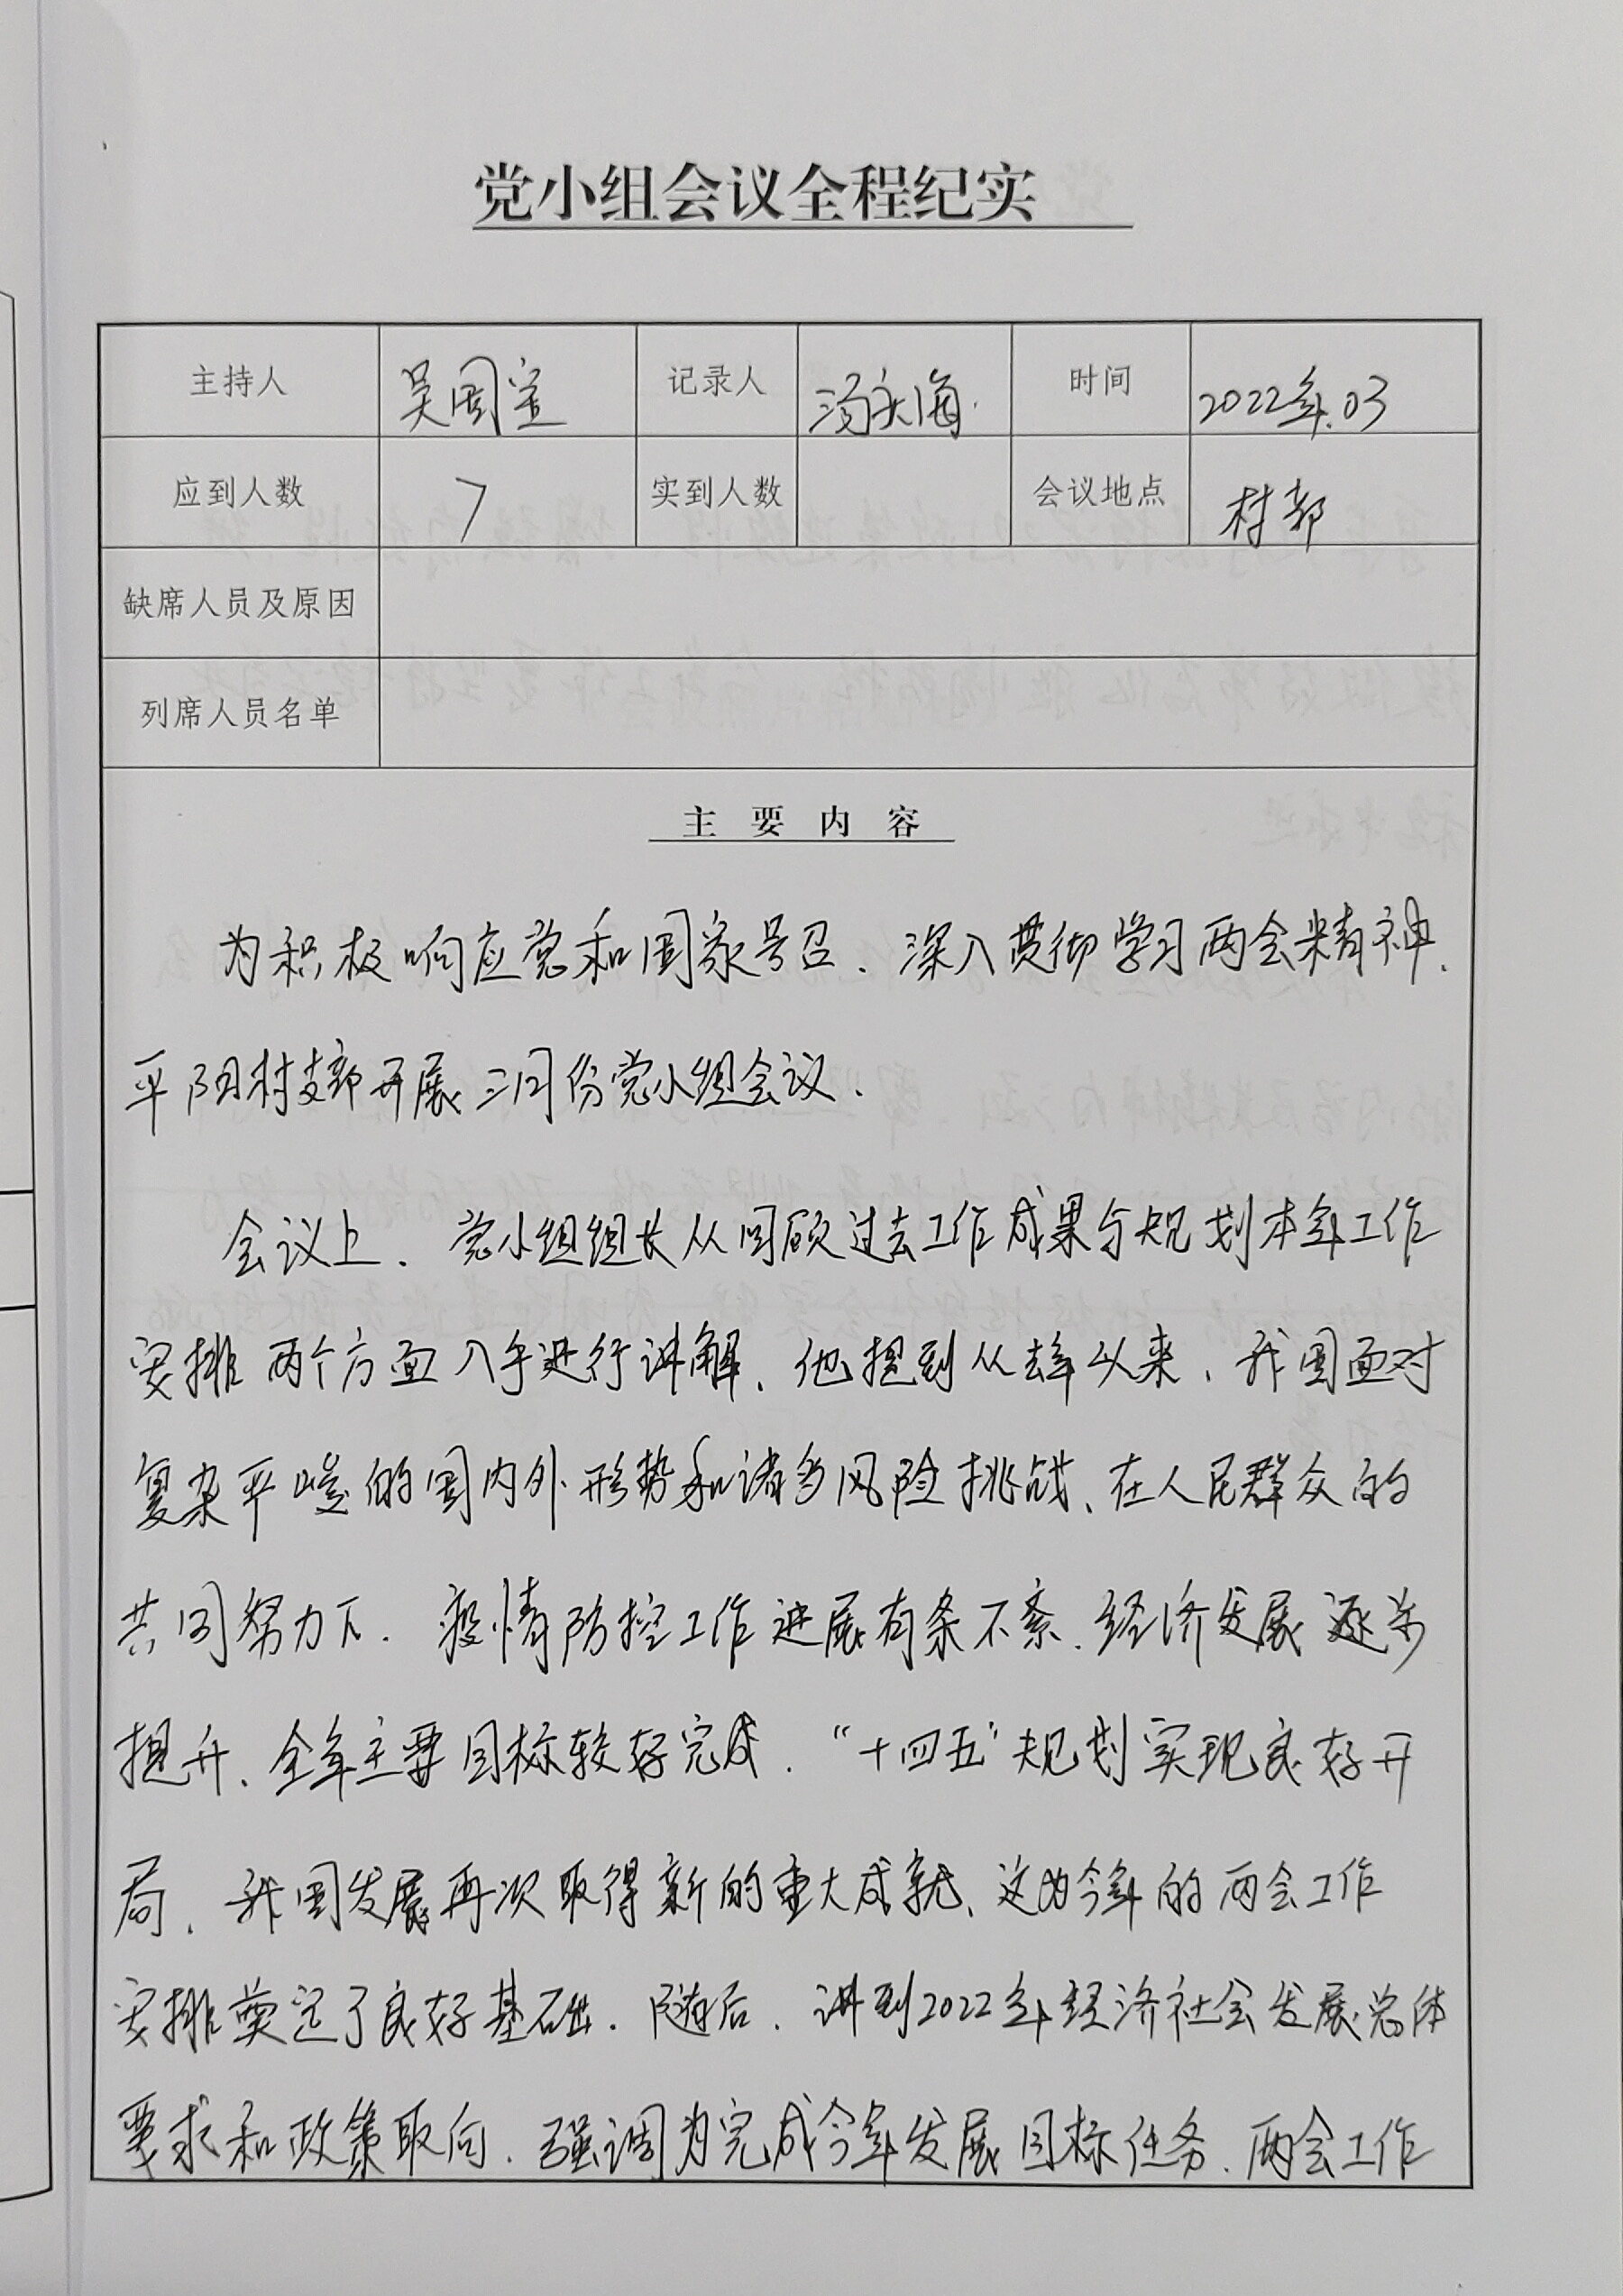 党小组会议全程纪实
主持人 吴国宝 记录人 汤 海 时间 2022年.03
应到人数 7 实到人数 会议地点 村部
缺席人员及原因
列席人员名单
主要内容
为积极响应党和国家号召、深入贯彻学习两会精神、
平阳村支部开展三月份党小组会议.
会议上、党小组组长从回顾过去工作成果与规划本年工作
安排两个方面入手进行讲解、他提到从去年以来、我国面对
复杂严峻的国内外形势和诸多风险挑战、在人民群众的
共同努力下.疫情防控工作进展有条不紊、经济发展逐步
提升、全年主要目标较好完成.“十四五”规划实现良好开
局、我国发展再次取得新的重大成就、这为今年的两会工作
安排奠定了良好基础.随后.讲到2022年经济社会发展总体
要求和政策取向.强调为完成今年发展目标任务.两会工作